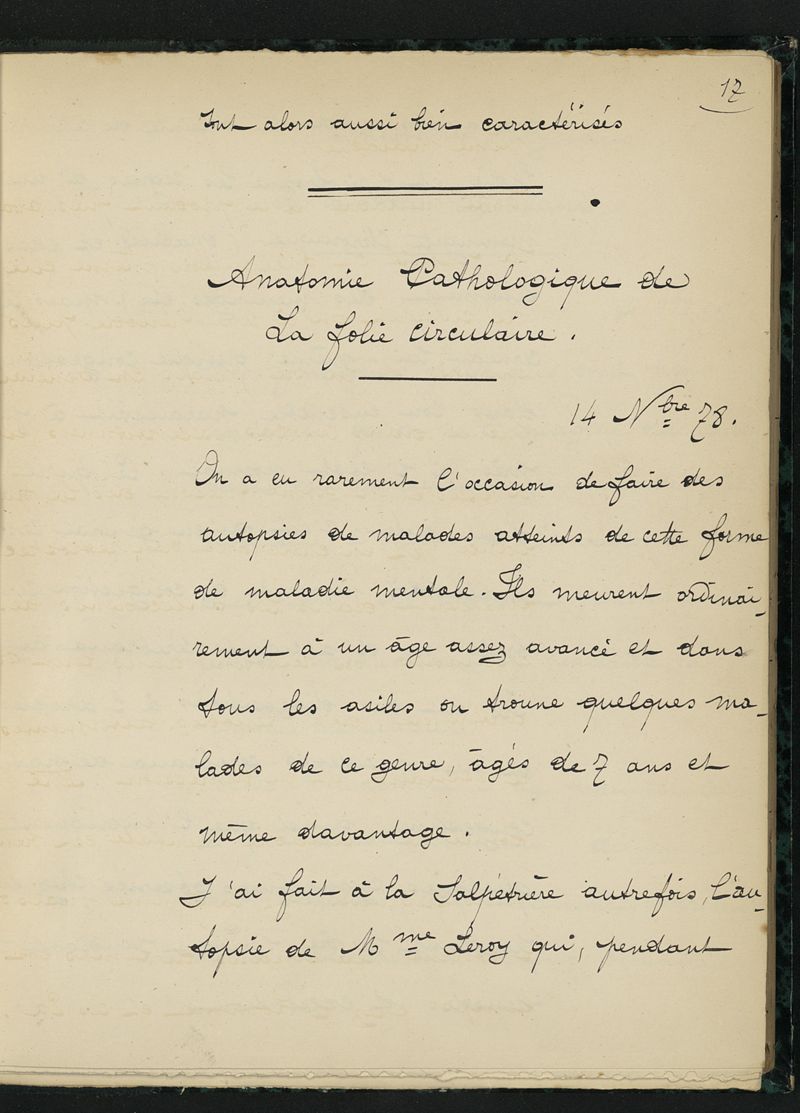 17
sont alors aussi bien caractérisés
Anatomie Pathologique de
La folie circulaire.
14 Nbre 78.
On a eu rarement l'occasion de faire des
autopsies de malades atteints de cette forme
de maladie mentale. Ils meurent ordinai-
rement à un âge assez avancé et dans
tous les asiles on trouve quelques ma-
lades de ce genre, âgés de 7 ans et
même davantage.
J'ai fait à la Salpétrière autrefois, l'au-
topsie de Mme Leroy qui, pendant